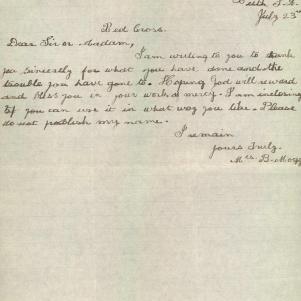 July 23rd
Red Cross.
Dear Sir or Madam,
I am writing to you to thank
you sincerely for what you have done and the
trouble you have gone to. Hoping God will reward
and bless you in your work of mercy. I am
If you can use it in what way you like. Please
do not publish my name.
I remain
yours Truly
Mrs. B.